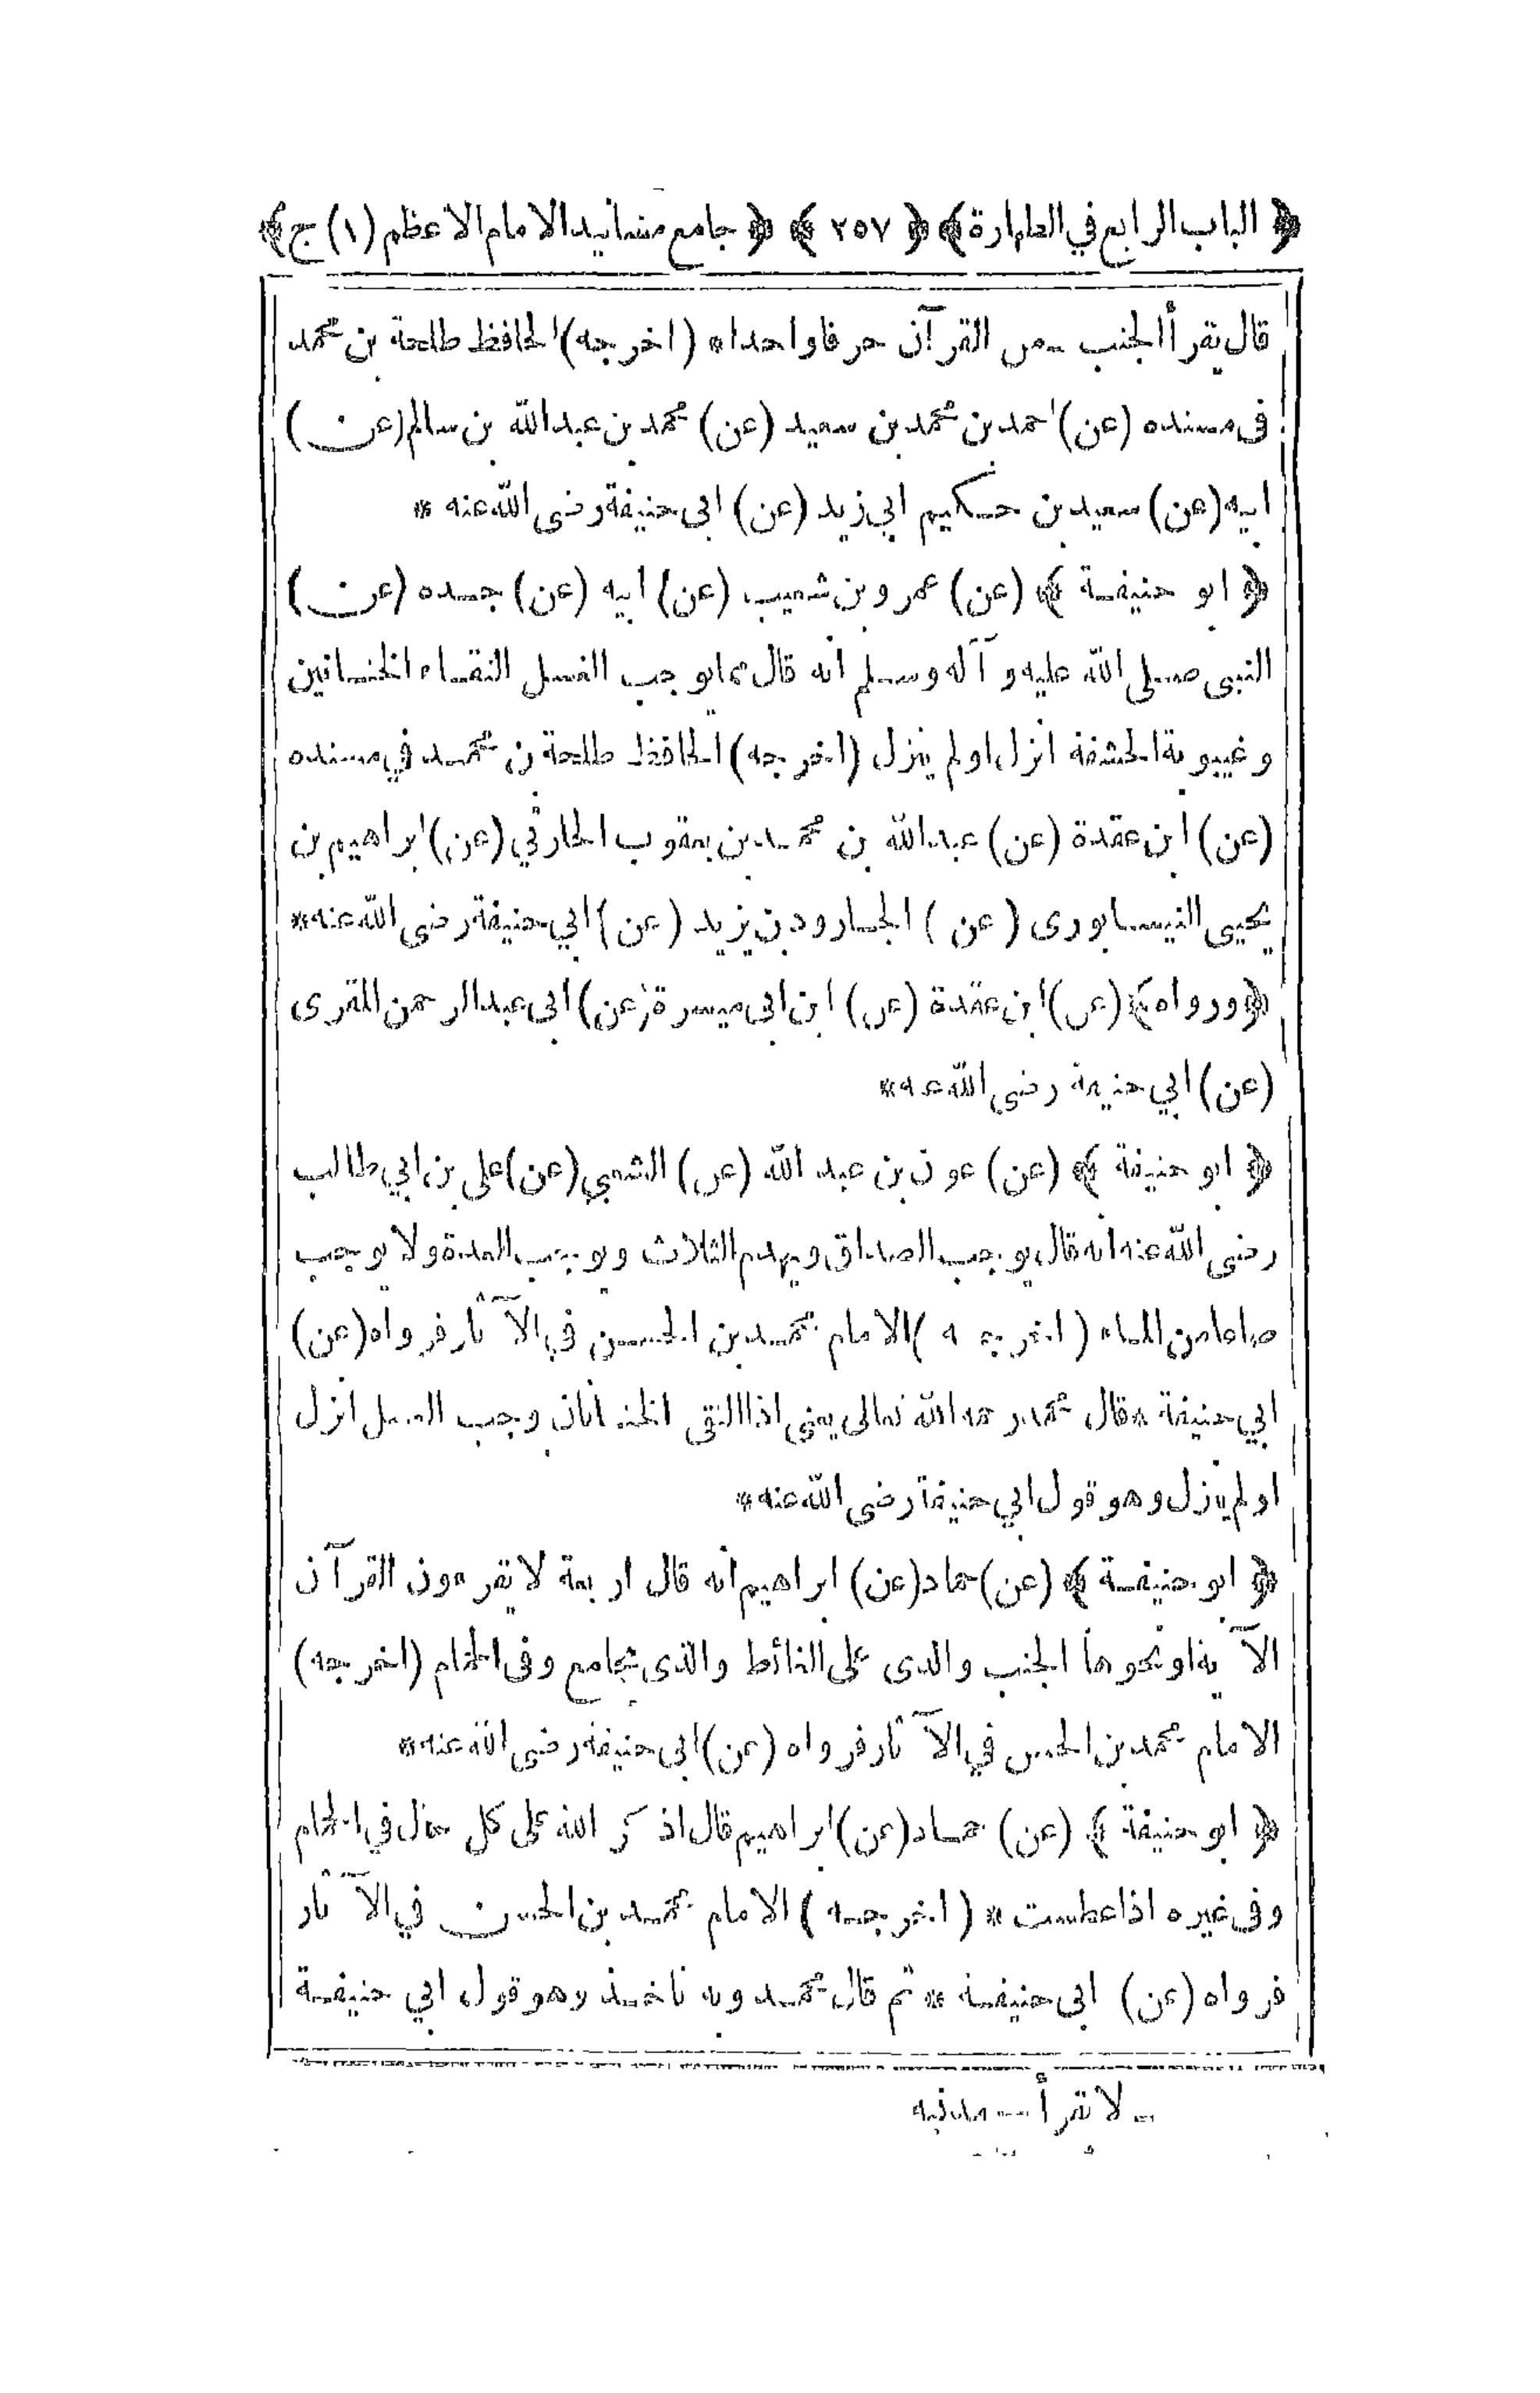 ﴿ الباب الرابع في الطهارة ﴾ ﴿ ٢٥٧ ﴾ ﴿ جامع مسانيد الامام الاعظم (١) ج ﴾
قال يقرأ الجنب من القرآن حرفا واحدا * (اخرجه) الحافظ طلحة بن محمد
فى مسنده (عن) احمد بن محمد بن سعيد (عن) محمد بن عبدالله بن سالم (عن)
ابيه (عن) سعيد بن حكيم ابي زيد (عن) ابى حنيفة رضى الله عنه *
﴿ ابو حنيفة ﴾ (عن) عمرو بن شعيب (عن) ابيه (عن) جده (عن)
النبى صلى الله عليه و آله وسلم انه قال يوجب الغسل التقاء الختانين
وغيبوبة الحشفة انزل او لم ينزل (اخرجه) الحافظ طلحة بن محمد في مسنده
(عن) ابن عقدة (عن) عبدالله بن محمد بن يعقوب الحارثي (عن) ابراهيم بن
يحيى النيسابورى (عن) الجارود بن يزيد (عن) ابي حنيفة رضى الله عنه *
﴿ ورواه ﴾ (عن) ابن عقدة (عن) ابن ابى ميسرة (عن) ابى عبد الرحمن المقرى
(عن) ابي حنيفة رضى الله عنه *
﴿ ابو حنيفة ﴾ (عن) عون بن عبد الله (عن) الشعبي (عن) على بن ابي طالب
رضى الله عنه انه قال يوجب الصداق ويهدم الثلاث ويوجب العدة ولا يوجب
صاعا من الماء (اخرجه) الامام محمد بن الحسن في الآثار فرواه (عن)
ابي حنيفة * قال محمد رحمه الله تعالى يعنى اذا التقى الختانان وجب الغسل انزل
او لم ينزل وهو قول ابي حنيفة رضى الله عنه *
﴿ ابو حنيفة ﴾ (عن) حماد (عن) ابراهيم انه قال اربعة لا يقرءون القرآن
الآية او نحوها الجنب والذى على الغائط والذى يجامع وفى الحمام (اخرجه)
الامام محمد بن الحسن في الآثار فرواه (عن) ابى حنيفة رضى الله عنه *
﴿ ابو حنيفة ﴾ (عن) حماد (عن) ابراهيم قال اذكر الله على كل حال في الحمام
وفى غيره اذا عطست * (اخرجه) الامام محمد بن الحسن في الآثار
فرواه (عن) ابى حنيفة * ثم قال محمد وبه ناخذ وهو قول ابي حنيفة
لا تقرأ